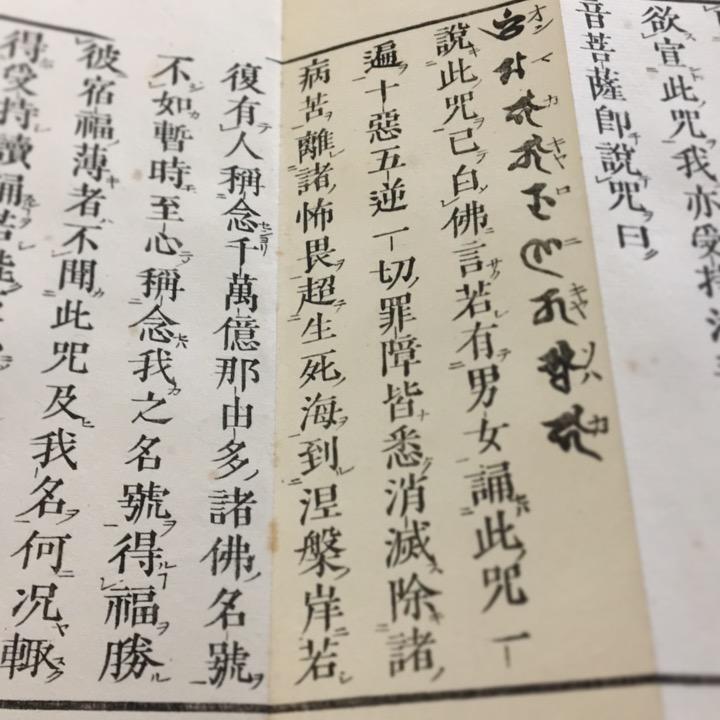 欲宣此咒我亦受持
音菩薩即說咒曰
オンマカキヤロニキヤソハカ
說此咒已白佛言若有男女誦此咒一
遍十惡五逆一切罪障皆悉消滅除諸
病苦離諸怖畏超生死海到涅槃岸若
復有人稱念千萬億那由多諸佛名號
不如暫時至心稱念我之名號得福勝
彼宿福薄者不聞此咒及我名何況輙
得受持讀誦若